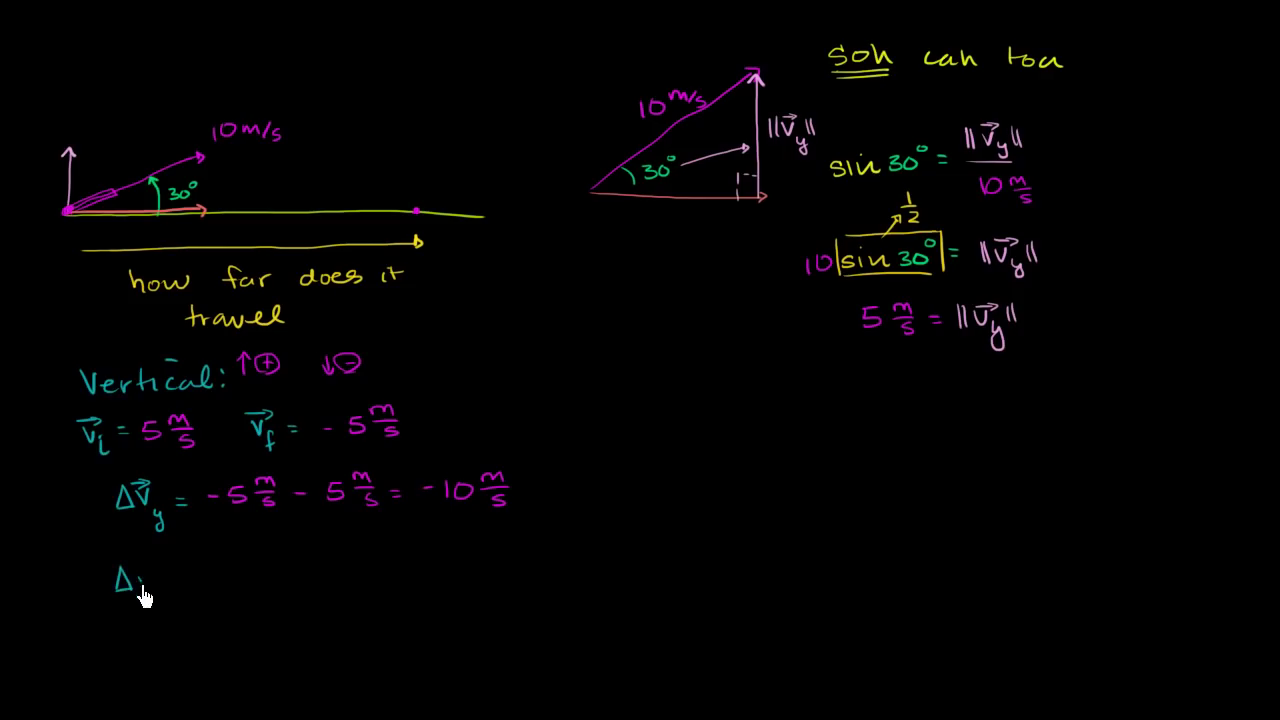 10 m/s
30°
how far does it
travel
Vertical: ↑⊕ ↓⊖
v⃗i = 5 m/s v⃗f = - 5 m/s
Δv⃗y = -5 m/s - 5 m/s = -10 m/s
Δ
10 m/s
30°
||v⃗y||
soh cah toa
sin 30° = ||v⃗y|| / 10 m/s
1/2
10 sin 30° = ||v⃗y||
5 m/s = ||v⃗y||